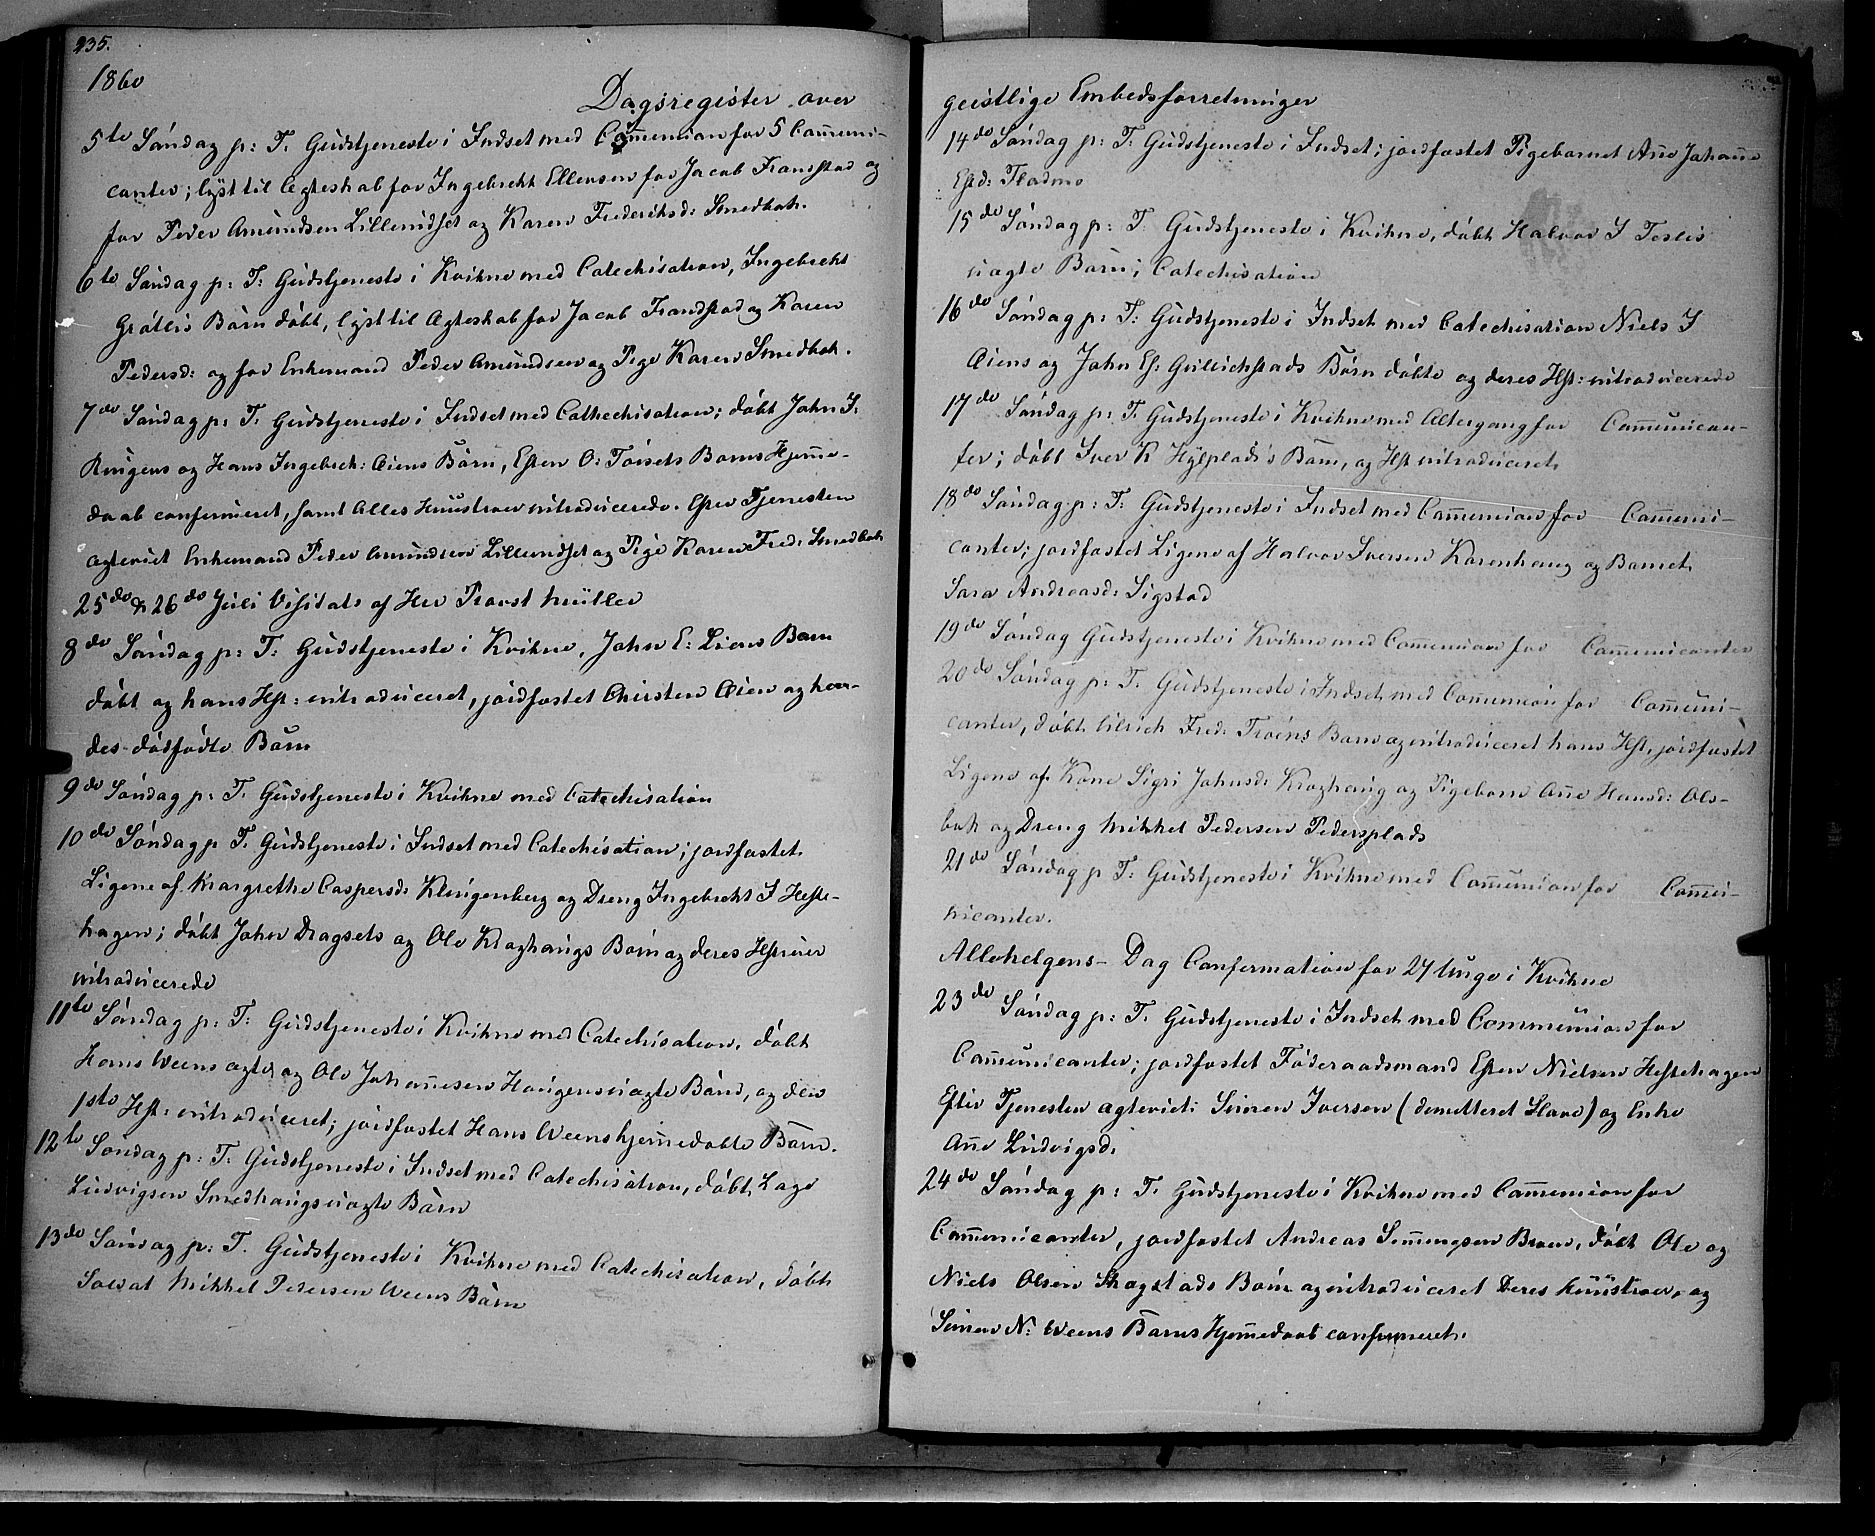 235.
1860
Dagsregister over
5te Søndag p: T. Gudstjeneste i Indset med Communion for 5 Communi-
canter; lyst til Ægteskab for Ingebrekt Ellensen for Jacob Franstad og
for Peder Amundsen Lilleindset og Karen Frederiksd: Smedbak.
6te Søndag p: T: Gudstjeneste i Kvikne med Catechisation, Ingebrekt
Grøtlis Barn døbt, lyst til Ægteskab for Jacob Frandstad og Karen
Pedersd: og for Enkemand Peder Amundsen og Pige Karen Smedbak.
7de Søndag p: T. Gudstjeneste i Indset med Cathechisation; døbt John I.
Ringens og Hans Ingebrek: Øiens Børn, Esten O: Tørsets Barns Hjemme-
daab confirmeret, samt Alles Huustroer introducerede. Efter Tjenesten
ægteviet Enkemand Peder Amundsen Lilleindset og Pige Karen Fred: Smedbak
25de & 26de Juli Visitats af Her Provst Müller
8de Søndag p: T: Gudstjeneste i Kvikne, John E: Liens Barn
døbt og hans Hst: introduceret, jordfæstet Chirsten Øien og hen-
des dødfødte Barn
9de Søndag p: T. Gudstjeneste i Kvikne med Catechisation
10de Søndag p T. Gudstjeneste i Indset med Catechisation; jordfæstet
Ligene af Margrethe Caspersd: Klingenberg og Dreng Ingebrekt I Heste-
hagen; døbt John Dragsets og Ole Kroghaugs Børn og deres Hstruer
introducerede
11te Søndag p: T: Gudstjeneste i Kvikne med Catechisation, døbt
Hans Weens ægte og Ole Johannesen Haugens uægte Børn, og den
1ste Hst: introduceret; jordfæstet Hans Weens hjemmedøbte Barn.
12te Søndag p: T. Gudstjeneste i Indset med Catechisation, døbt Lage
Ludvigsen Smedhaugs uægte Barn
13de Søndag p: T. Gudstjeneste i Kvikne med Catechisation, døbt
Soldat Mikkel Pedersen Weens Barn
geistlige Embedsforretninger
14de Søndag p: T. Gudstjeneste i Indset; jordfæstet Pigebarnet Ane Johanne
Estd: Fladmo
15de Søndag p: T. Gudstjeneste i Kvikne, døbt Halvor I Teslis
uægte Barn; Catechisation
16de Søndag p: T: Gudstjeneste i Indset med Catechisation Niels I
Øiens og John Es: Gullichstads Børn døbte og deres Hst: introducerede
17de Søndag p: T. Gudstjeneste i Kvikne med Altergang for Communican-
ter; døbt Iver K Hylplads's Barn, og Hst introduceret
18de Søndag p: T: Gudstjeneste i Indset med Communion for Communi-
canter; jordfæstet Ligene af Halvor Iversen Karenhaug og Barnet
Sara Andreasd: Sigstad
19de Søndag Gudstjeneste i Kvikne med Communion for Communicanter
20de Søndag p: T. Gudstjeneste i Indset med Communion for Communi-
canter, døbt Ulrich Fred: Trøens Barn og introduceret hans Hst, jordfæstet
Ligene af Kone Sigri Johnsd: Kroghaug og Pigebarn Ane Hansd: Ols-
bak og Dreng Mikkel Pedersen Pedersplads
21de Søndag p: T: Gudstjeneste i Kvikne med Communion for Commu-
nicanter.
Allehelgens-Dag Confirmation for 27 Unge i Kvikne
23de Søndag p: T. Gudstjeneste i Indset med Communion for
Communicanter; jordfæstet Føderaadsmand Esten Nielsen Hestehagen
Efter Tjenesten ægteviet: Simen Iversen (demitteret Slave) og Enke
Ane Ludvigsd:
24de Søndag p: T. Gudstjeneste i Kvikne med Communion for
Communicanter, jordfæstet Andreas Simensen Broen, døbt Ole og
Niels Olsen Skogstads Børn og introduceret Deres Huustroer, og
Simen N: Weens Barns Hjemmedaab confirmeret.